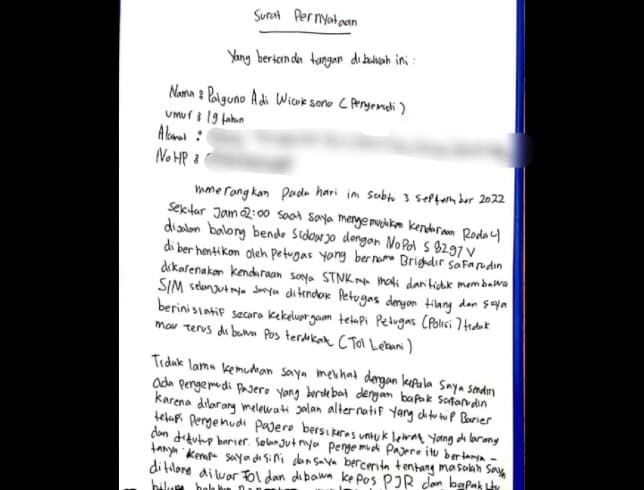 Surat Pernyataan
Yang bertanda tangan dibawah ini :
Nama : Palguno Adi Wicaksono (Pengemudi)
umur : 19 tahun
Alamat :
No HP :
menerangkan Pada hari ini Sabtu 3 September 2022
Sekitar Jam 02:00 Saat Saya mengemudikan kendaraan Roda 4
dijalan balong bendo Sidoarjo dengan NoPol S 8297 V
diberhentikan oleh Petugas yang bernama Brigadir Safarudin
dikarenakan kendaraan saya STNKnya mati dan tidak membawa
SIM selanjutnya saya ditindak Petugas dengan tilang dan saya
berinisiatif secara kekeluargaan tetapi Petugas (Polisi) tidak
mau terus dibawa Pos terdekat (Tol Lebani)
Tidak lama kemudian saya melihat dengan kepala Saya sendiri
ada pengemudi Pajero yang berdebat dengan bapak Safarudin
karena dilarang melewati jalan alternatif yang ditutup Barier
tetapi pengemudi Pajero bersikeras untuk lewat yang dilarang
dan ditutup barier. Selanjutnya Pengemudi Pajero itu bertanya-
tanya kenapa saya disini dan saya bercerita tentang masalah saya
ditilang diluar Tol dan dibawa ke Pos PJR dan bapak itu